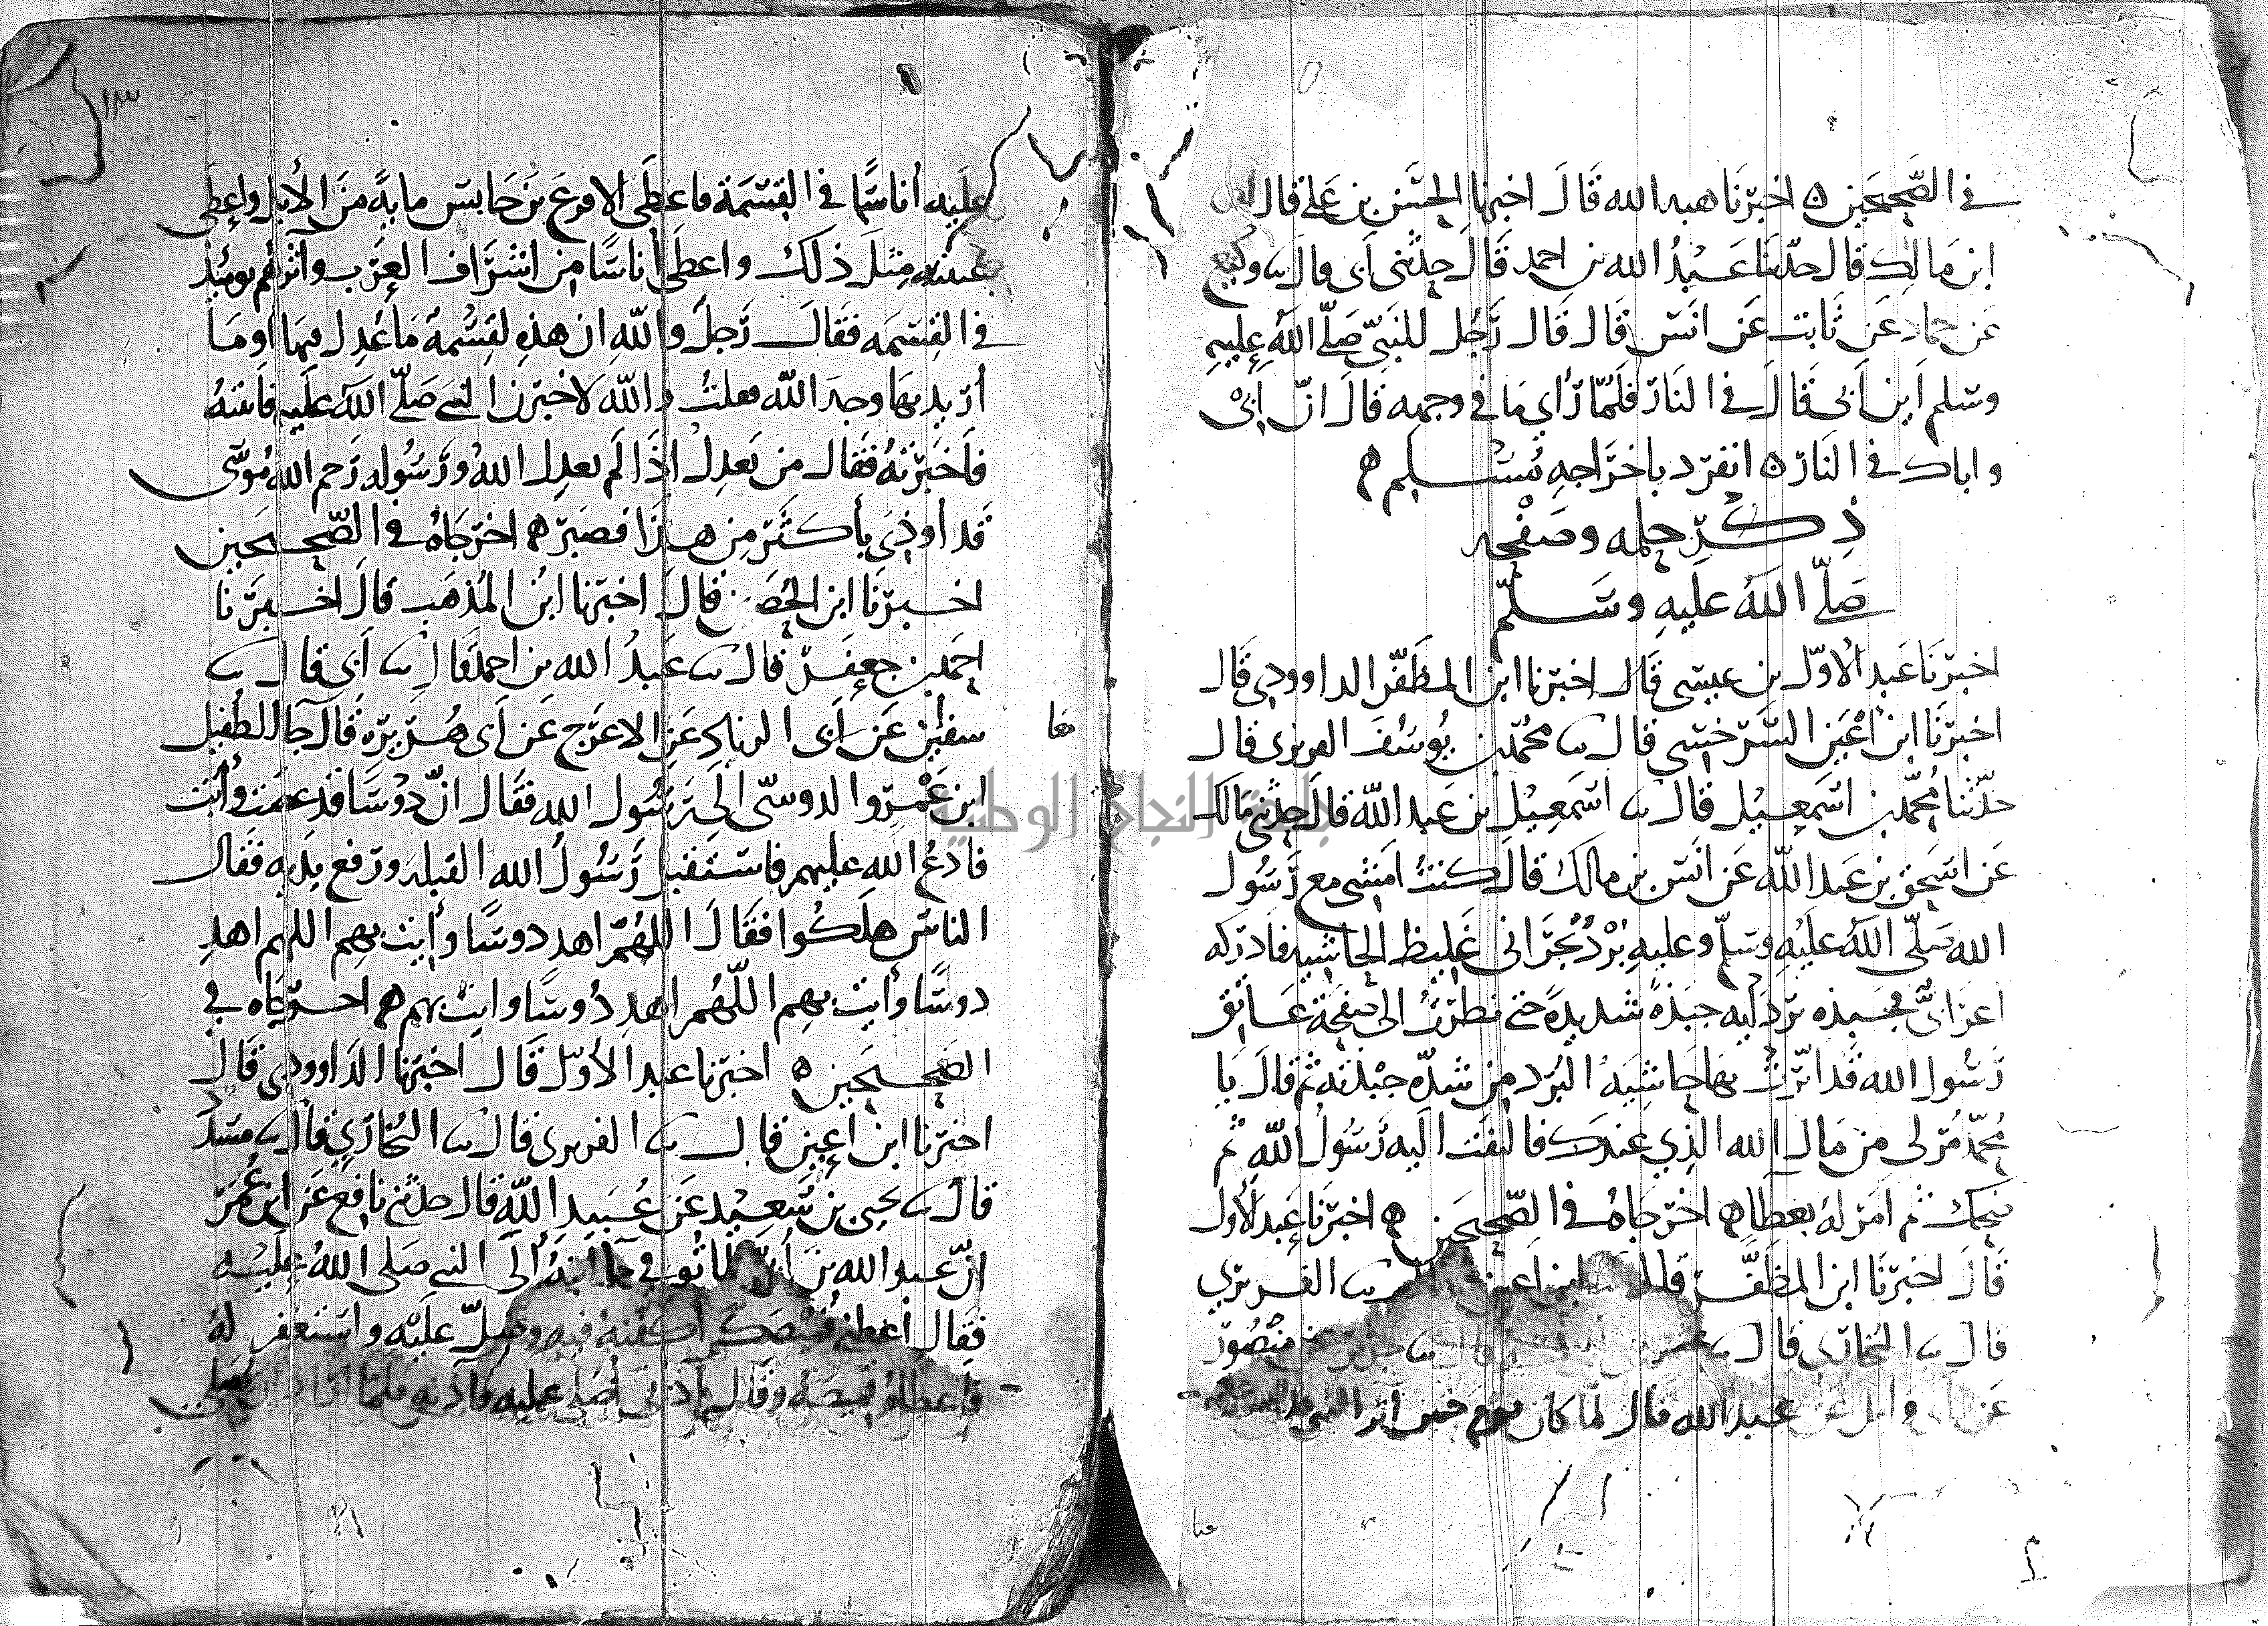 في الصحيحين ه اخبرَنا هبه الله قَالَ اخبرنا الحسَن بن عَلي قال
ابن مَالك قال حدّثنا عَبْدُ الله بن احمد قَالَ حدّثني أبي قال وكيع
عَن حماد عَن ثَابت عَن انَس قَالَ قَالَ رَجُل للنَبيّ صَلّى اللهُ عليهِ
وسَلم أين أبي قَالَ في النَار فلَمّا رَأى مَا في وجهه قَالَ انّ ابِيْ
واباك في النَار ه انفرَد باخرَاجهِ مُسْلِم ه
ذِكْر حِلمه وصَفْحه
صَلّى اللهُ عَليهِ وسَلّم
اخبرَنَا عَبد الأوّل بن عيسَى قَالَ اخبرَنا ابن المظَفّر الداوودي قَالَ
اخبرَنَا ابن أعْيَن السَّرَخسي قَالَ محُمّد بن يُوسُفَ الفربري قال
حدّثنا مُحمّد بن اسْمَعِيْل قالَ اسْمَعِيْل بن عَبد الله قالَ حدثني مَالك
عَن اسحَق بن عَبد الله عَن أنَس بن مالك قَالَ كنتُ امشي مع رَسُول
الله صَلّى اللهُ عَليْهِ وسَلّم وعليهِ بُرْدٌ نجْرَاني غَليظ الحاشيه فادرَكه
اعرَابيٌّ فجبذه بردَائِه جَبْذةً شديدةً حتى نظَرتُ الى صَفحة عَاتِق
رَسُول الله قد اثّرت بهَا حَاشيَة البُرد من شدّة جبْذته ثم قالَ يَا
مُحمّد مُر لي من مَال الله الذِي عندكَ فالتفَت اليه رَسُولُ الله ثم
ضحِك ثم امَر لهُ بعطَاء ه اخرجَاهُ في الصّحيحَين ه اخبرَنَا عَبد الأول
قَالَ اخبرنَا ابن المظَفّر قال ابن اعين الفربري
قالَ البخَاري قالَ منصُور
عَن وايل عَن عَبد الله قَالَ لما كان يَوم حنين آثر النبي
عليه أنَاسًا في القِسْمَة فاعطَى الاقرعَ بن حَابس مايةً منَ الأبل واعطَى
عيينَه مِثلَ ذلك واعطَى أنَاسًا من اشرَاف العرَب وآثرَهُم يوميذ
في القِسمَه فقَالَ رَجلٌ والله ان هذهِ لقِسْمةٌ مَا عُدِل فيهَا او مَا
أريد بهَا وجه الله فقلتُ والله لأخبرَن النبي صَلّى اللهُ عَليه فاتيتهُ
فاخبَرتهُ فقَالَ من يَعدِلُ اذَا لم يعدِل اللهُ ورَسُوله رَحم الله مُوسَى
قد أوذِيَ بأكثَرَ مِن هذَا فصبَرَ ه اخرَجَاهُ في الصّحيحَين
اخبرَنَا ابن الحُصَين قالَ اخبرَنا ابن المُذهَب قَالَ اخبرَنا
احمَد بن جعفَر قالَ عَبدُ الله بن احمد قالَ أبي قالَ
سفيٰن عَن أبي الزناد عَن الاعرَج عَن أبي هُرَيرَه قَالَ جَا الطُفَيل
ابن عَمْرو الدوسِيّ الَى رَسُول الله فقَال انّ دَوْسًا قد عصَت وأبَت
فادعُ الله عليهم فاستَقبل رَسُولُ الله القبله ورَفع يدَيه فقَال
الناسُ هلَكُوا فقَالَ اللهُمّ اهد دوسًا وأيت بهِم اللهم اهدِ
دوسًا وأيت بهِم اللّهُم اهدِ دُوسًا وايت بهم ه اخرَجَاه في
الصَّحيحَين ه اخبرَنا عبد الأوّل قَالَ اخبرَنا الدَاوودي قَالَ
اخبرَنا ابن أعين قالَ الفربري قالَ البُخاري قالَ مسَدّد
قالَ يحيى بن سَعِيْد عَن عُبَيدِ الله قالَ حدثني نافِع عَن ابن عُمَر
انّ عبد الله بن أبي لمّا تُوفي جَا ابنهُ الَى النبي صَلى اللهُ عَليْه
فقَال أعطِني قميْصَك أكفنهُ فيه وصَلّ عليْه واستَغفر لهُ
فاعطاهُ قميصَهُ وقَالَ أذني أصَلي عليه فاذنه فلمّا ارَادَ ان يُصَلي